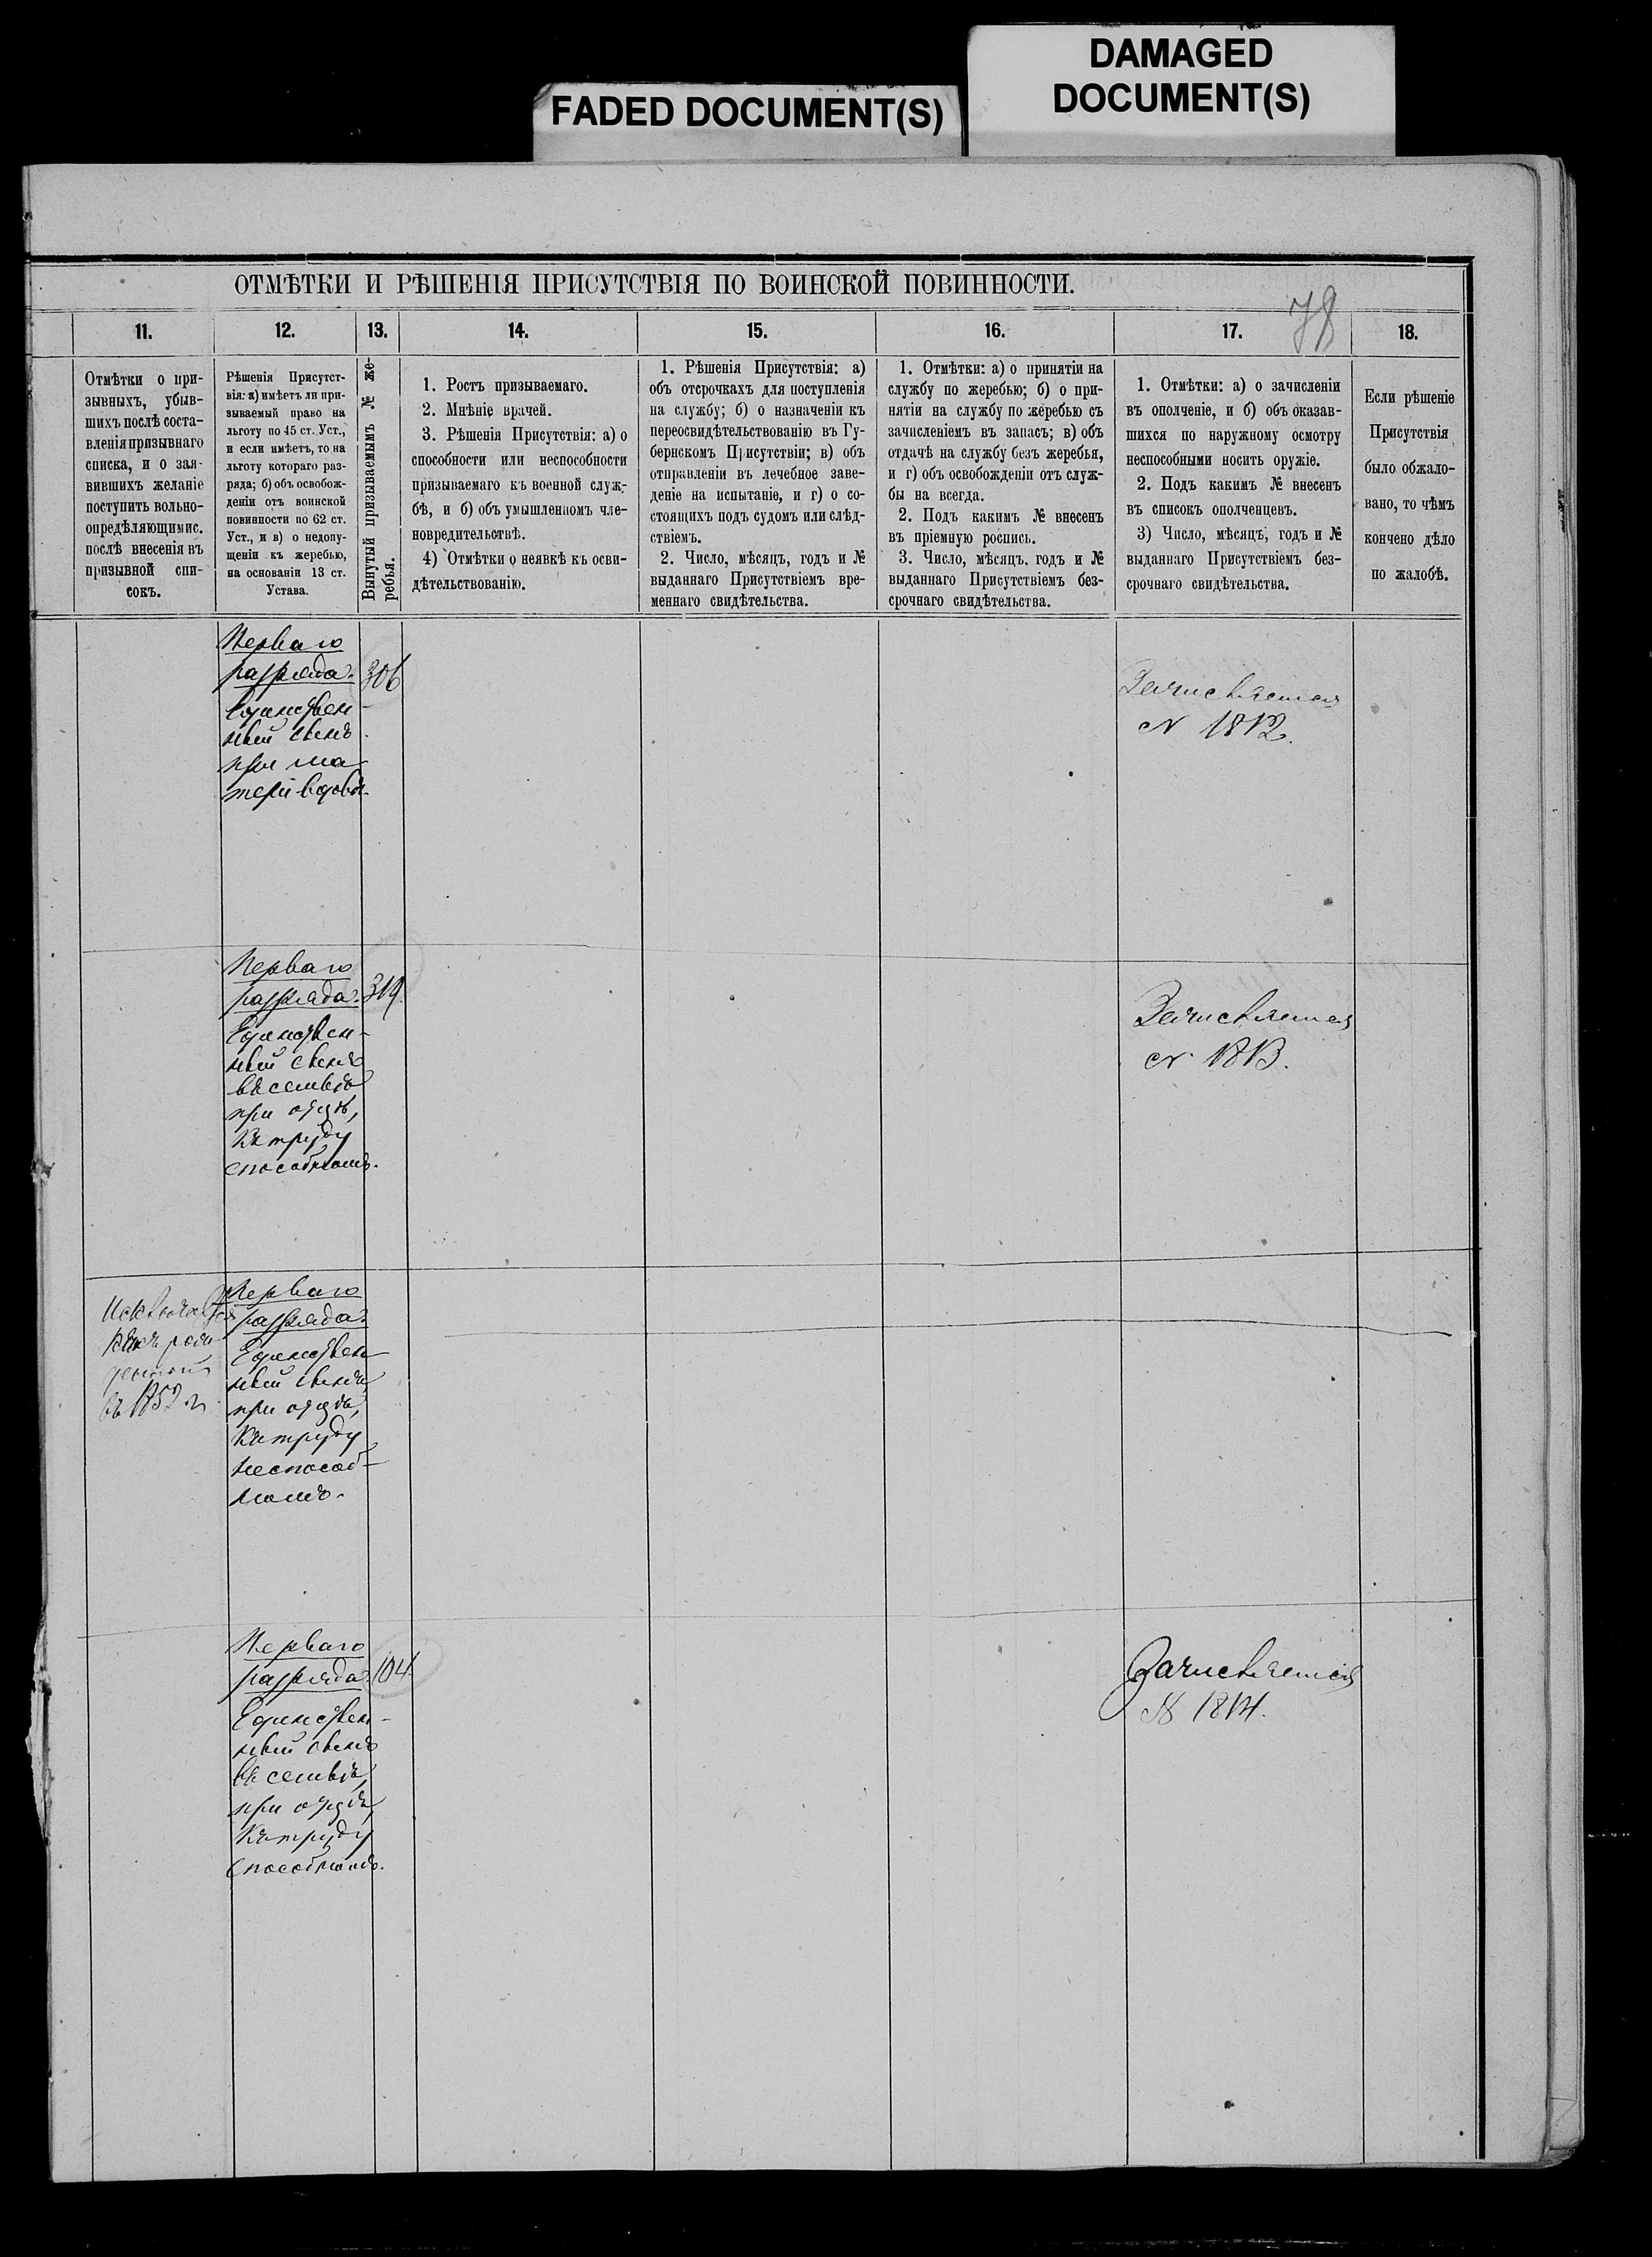 DAMAGED
DOCUMENT(S)
FADED DOCUMENT(S)
ОТМѢТКИ И РѢШЕНІЯ ПРИСУТСТВІЯ ПО ВОИНСКОЙ ПОВИННОСТИ.
78
11.
12.
13.
14.
15.
16.
17.
18.
Отмѣтки о при-
зывныхъ, убыв-
шихъ послѣ соста-
вленія призывнаго
списка, и о зая-
вившихъ желаніе
поступить вольно-
опредѣляющимис.
послѣ внесенія въ
призывной спи-
сокъ.
Рѣшенія Присутст-
вія: а) имѣетъ ли при-
зываемый право на
льготу по 45 ст. Уст.,
и если имѣетъ, то на
льготу котораго раз-
ряда; б) объ освобож-
деніи отъ воинской
повинности по 62 ст.
Уст., и в) о недопу-
щеніи къ жеребью,
на основаніи 13 ст.
Устава.
Вынутый призываемымъ № же-
ребья.
1. Ростъ призываемаго.
2. Мнѣніе врачей.
3. Рѣшенія Присутствія: а) о
способности или неспособности
призываемаго къ военной служ-
бѣ, и б) объ умышленномъ чле-
новредительствѣ.
4) Отмѣтки о неявкѣ къ осви-
дѣтельствованію.
1. Рѣшенія Присутствія: а)
объ отсрочкахъ для поступленія
на службу; б) о назначеніи къ
переосвидѣтельствованію въ Гу-
бернскомъ Присутствіи; в) объ
отправленіи въ лечебное заве-
деніе на испытаніе, и г) о со-
стоящихъ подъ судомъ или слѣд-
ствіемъ.
2. Число, мѣсяцъ, годъ и №
выданнаго Присутствіемъ вре-
меннаго свидѣтельства.
1. Отмѣтки: а) о принятіи на
службу по жеребью; б) о при-
нятіи на службу по жеребью съ
зачисленіемъ въ запасъ; в) объ
отдачѣ на службу безъ жеребья,
и г) объ освобожденіи отъ служ-
бы на всегда.
2. Подъ какимъ № внесенъ
въ пріемную роспись.
3. Число, мѣсяцъ, годъ и №
выданнаго Присутствіемъ без-
срочнаго свидѣтельства.
1. Отмѣтки: а) о зачисленіи
въ ополченіе, и б) объ оказав-
шихся по наружному осмотру
неспособными носить оружіе.
2. Подъ какимъ № внесенъ
въ списокъ ополченцевъ.
3) Число, мѣсяцъ, годъ и №
выданнаго Присутствіемъ без-
срочнаго свидѣтельства.
Если рѣшеніе
Присутствія
было обжало-
вано, то чѣмъ
кончено дѣло
по жалобѣ.
Перваго
разряда.
Единствен-
ный сынъ
при ма
тери вдовѣ.
306
Зачисляется
№ 1812.
Перваго
разряда.
Единствен-
ный сынъ
въ семьѣ
при отцѣ,
къ труду
способномъ.
319.
Зачисляется
№ 1813.
Исключается
какъ рож
денный
въ 1852 г.
Перваго
разряда.
Единствен
ный сынъ,
при отцѣ,
къ труду
неспособ-
номъ.
Перваго
разряда.
Единствен-
ный сынъ
въ семьѣ,
при отцѣ,
къ труду
способномъ.
104.
Зачисляется
№ 1814.